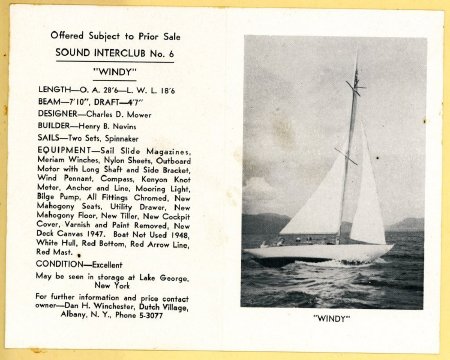 Offered Subject to Prior Sale
SOUND INTERCLUB No. 6
"WINDY"
LENGTH—O. A. 28'6—L. W. L. 18'6
BEAM—7'10", DRAFT—4'7"
DESIGNER—Charles D. Mower
BUILDER—Henry B. Nevins
SAILS—Two Sets, Spinnaker
EQUIPMENT—Sail Slide Magazines,
Meriam Winches, Nylon Sheets, Outboard
Motor with Long Shaft and Side Bracket,
Wind Pennant, Compass, Kenyon Knot
Meter, Anchor and Line, Mooring Light,
Bilge Pump, All Fittings Chromed, New
Mahogany Seats, Utility Drawer, New
Mahogany Floor, New Tiller, New Cockpit
Cover, Varnish and Paint Removed, New
Deck Canvas 1947. Boat Not Used 1948,
White Hull, Red Bottom, Red Arrow Line,
Red Mast.
CONDITION—Excellent
May be seen in storage at Lake George,
New York
For further information and price contact
owner—Dan H. Winchester, Dutch Village,
Albany, N. Y., Phone 5-3077
"WINDY"